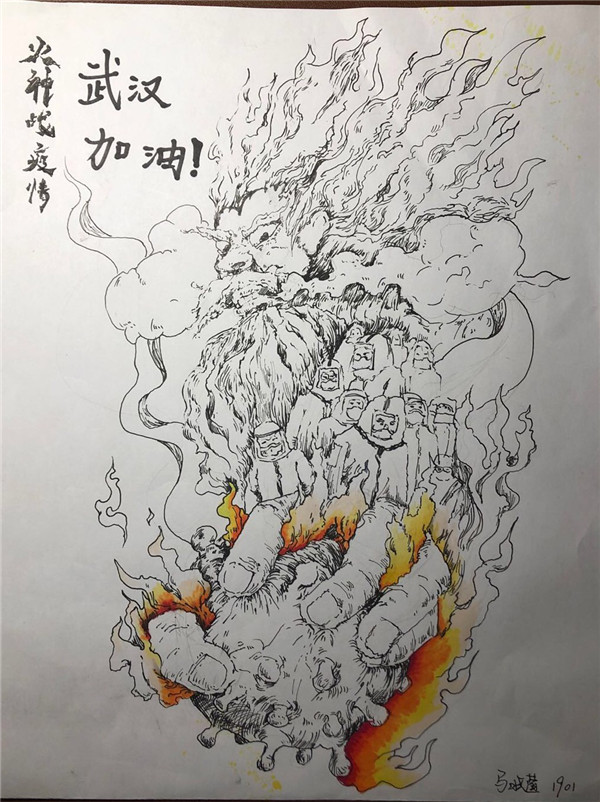 火神战疫情
武汉
加油!
1901